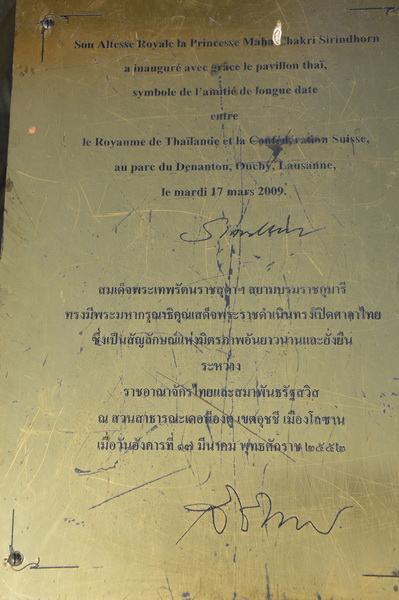 Son Altesse Royale la Princesse Maha Chakri Sirindhorn
a inauguré avec grâce le pavillon thaï,
symbole de l'amitié de longue date
entre
le Royaume de Thaïlande et la Confédération Suisse,
au parc du Denantou, Ouchy, Lausanne,
le mardi 17 mars 2009.
สมเด็จพระเทพรัตนราชสุดาฯ สยามบรมราชกุมารี
ทรงมีพระมหากรุณาธิคุณเสด็จพระราชดำเนินทรงเปิดศาลาไทย
ซึ่งเป็นสัญลักษณ์แห่งมิตรภาพอันยาวนานและยั่งยืน
ระหว่าง
ราชอาณาจักรไทยและสมาพันธรัฐสวิส
ณ สวนสาธารณะเดอน็องตู เขตอุชชี เมืองโลซาน
เมื่อวันอังคารที่ ๑๗ มีนาคม พุทธศักราช ๒๕๕๒